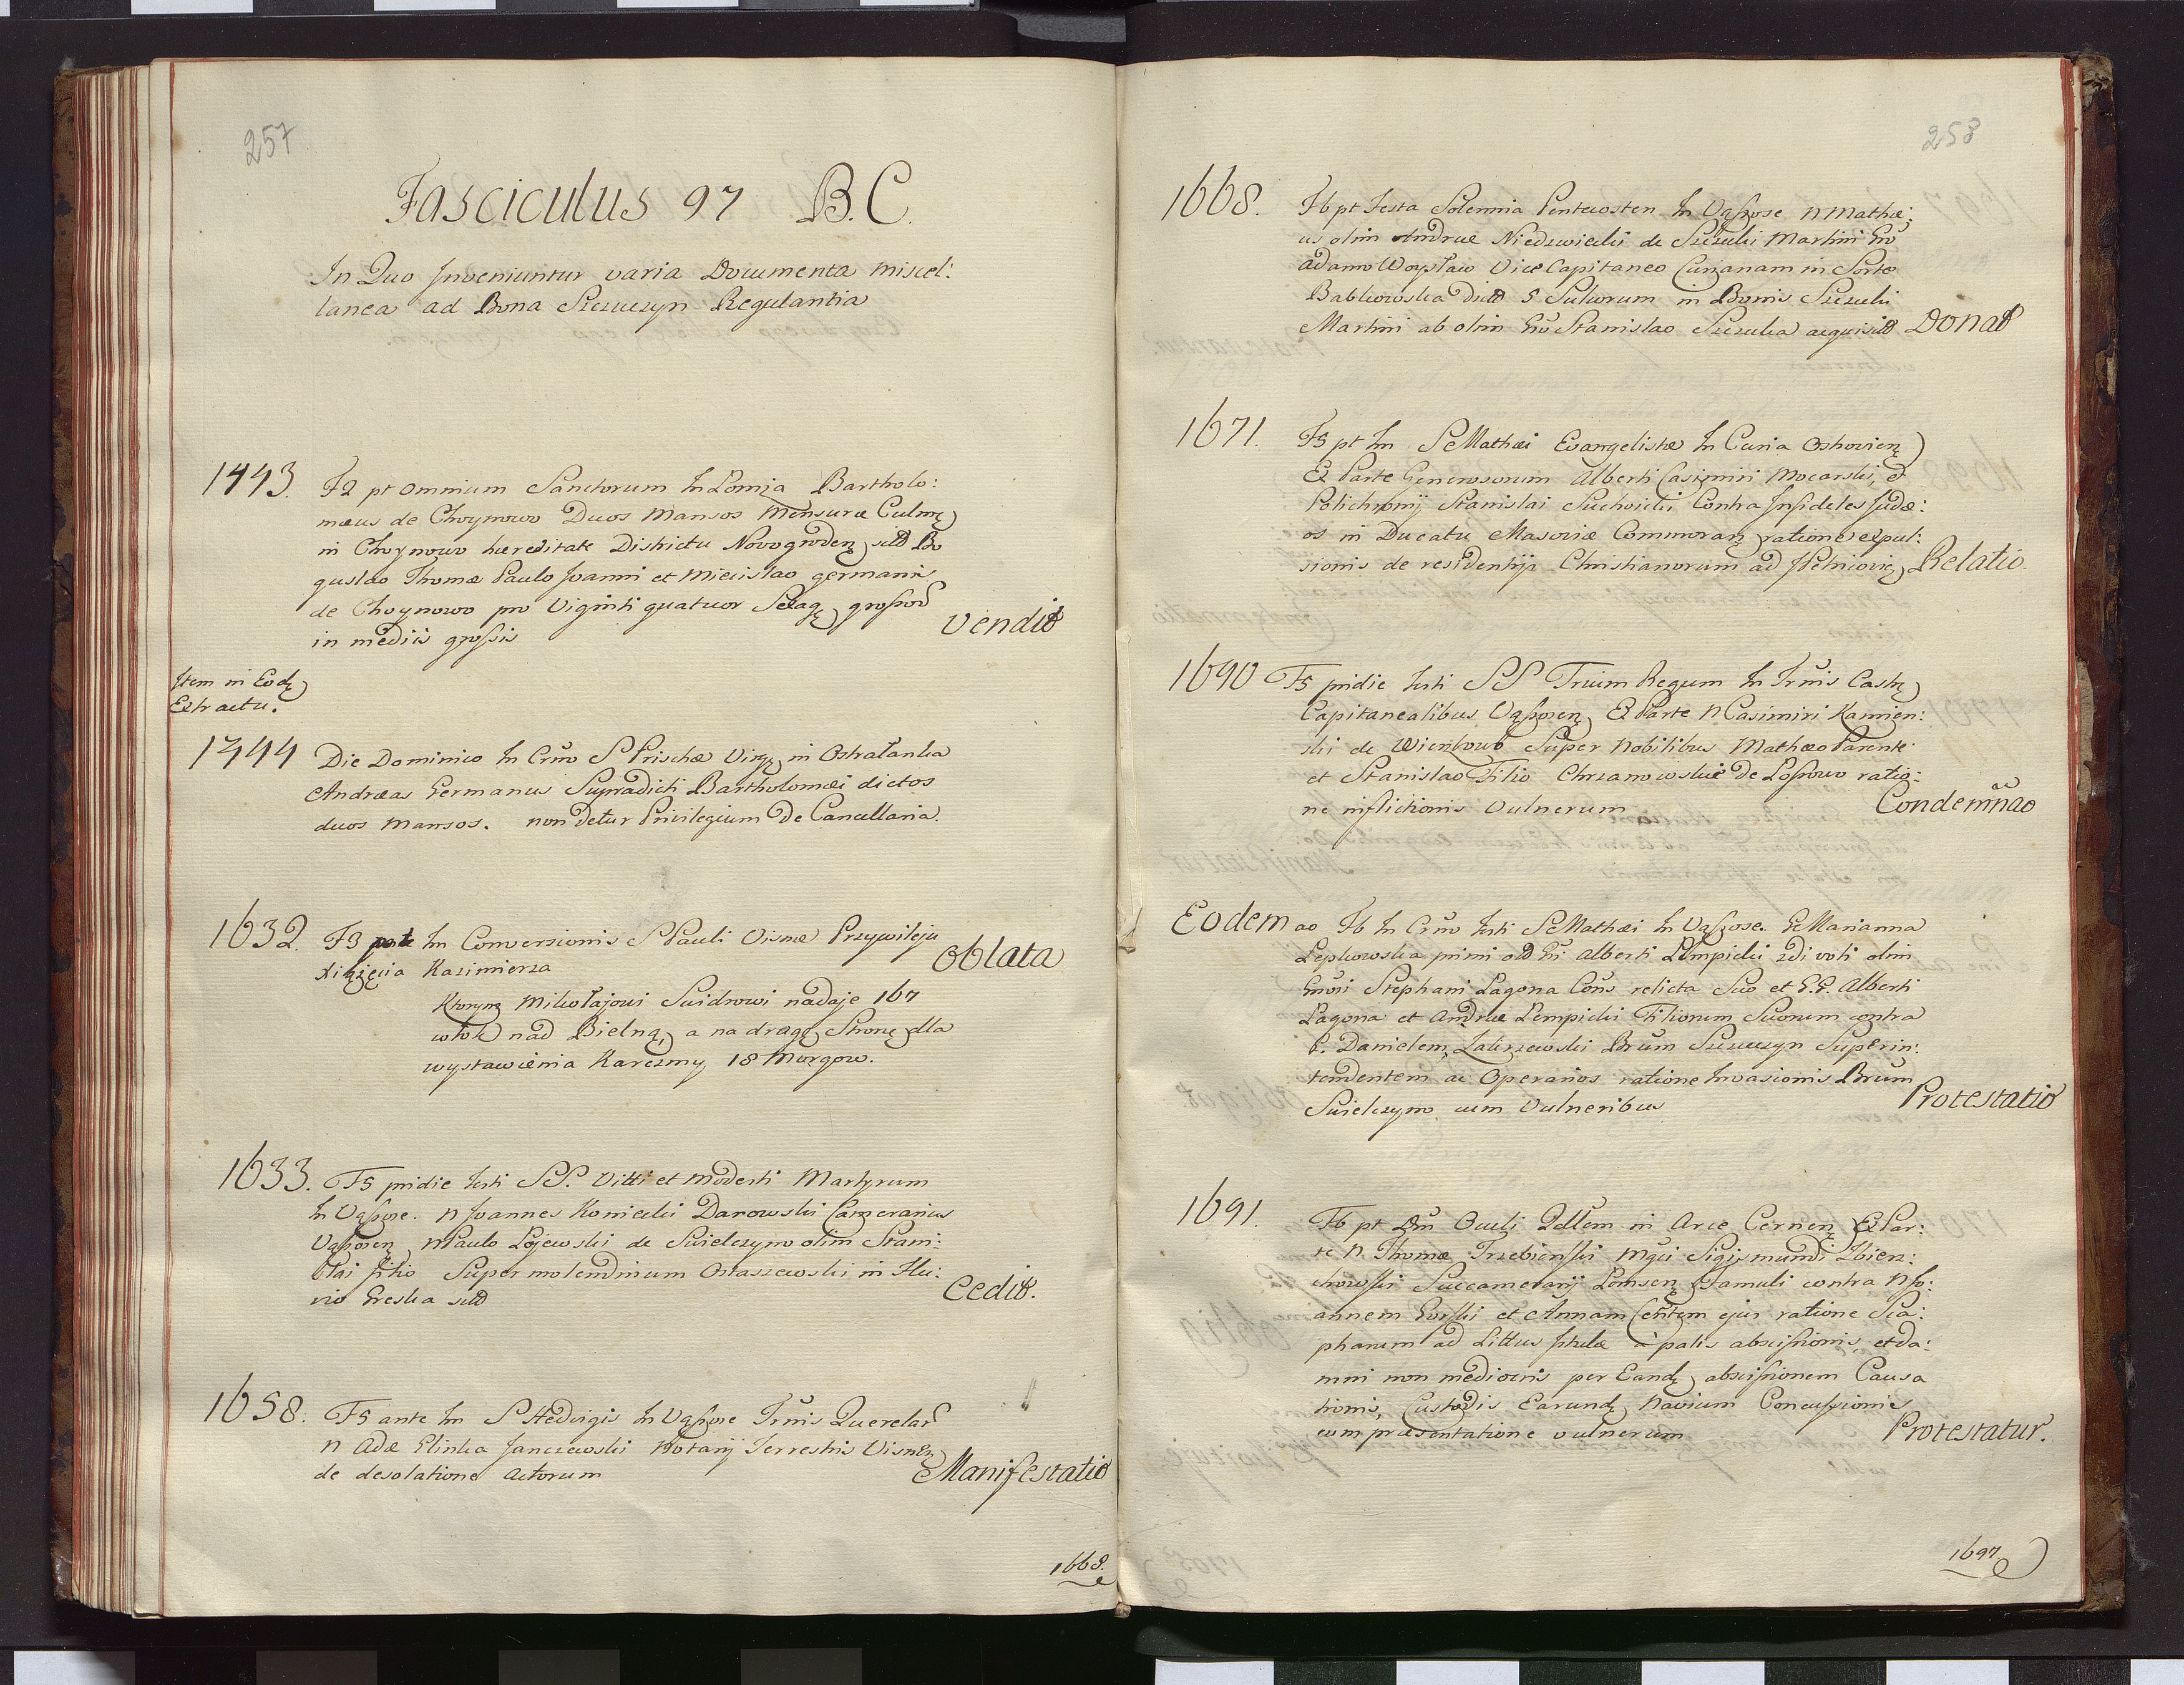 257
Fasciculus 97 B.C.
In Quo Inveniuntur varia Documenta miscel:
lanea ad Bona Szczuczyn Regulantia
1443. F2 pt omnium Sanctorum In Lomza Bartholo:
mæus de Choynowo Duos Mansos Mensuræ Culmę
in Choynowo hæreditate Districtu Novogrodenę sitd Bo
guslao Thomæ Paulo Joanni et Miecislao germanis
de Choynowo pro Viginti quatuor Sexagę grossor
in mediis grossis
Vendit
Item in Eodę
Extractu.
1444 Die Dominico In Crno S Prischæ Virgę in Ostrałanka
Andræas Germanus Supradicti Bartholomæi dictos
duos Mansos. non detur Privilegium De Cancellaria.
1632. F3 pnte Im Conversionis S Pauli Visnæ Przywileju
Xiążęcia Kazimierza
Oblata
Ktorym Mikołajowi Swidrowi nadaje 167
włok nad Bielną, a na drugę Stronę dla
wystawienia Karczmy 18 Morgow.
1633. F5 pridie festi SS. Vitti et Modesti Martyrum
In Vąssose. N Joannes Koniecki Darowski Camerarius
Vąssosenę N Paulo Łojewski de Swielczyno olim Stani:
slai filio Super molendinum Ostaszewski in Flu:
vio Ereska sitd
Cedit.
1658. F5 ante Im S Hedvigis In Vąssose Trnis Querelar
N Adæ Glinka Janczewski Notarij Terrestris Visnenę
de desolatione Actorum
Manifestatio
1668.
258
1668. F6 pt festa Solennia Pentecosten In Vąssose N Mathæ:
us olim Andreæ Niedzwiecki de Szczuki Martini Gro
Adamo Woysław Vice Capitaneo Curianam in Sorte
Babkowska dictd 5 Sulcorum in Bonis Szczuki
Martini ab olim Gro Stanislao Szczuka acquisitd
Donat
1671. F5 pt Im S Mathæi Evangelistæ In Curia Oshovienę
Ex Parte Generosorum Alberti Casimiri Mocarski, et
Polichronij Stanislai Suchcicki Contra Infideles Judæ:
os in Ducatu Masoviæ Commoranę ratione expul:
sionis de residentijs Christianorum ad
Relatio.
1690 F5 pridie festi SS Trium Regum In Trnis Castrę
Capitanealibus Vąssosenę Ex Parte N Casimiri Kamien:
ski de Wienkowo Super Nobilibus Mathæo Parente
et Stanislao Filio Chrzanowskie De Lossowo ratio:
ne inflictionis Vulnerum
Condemnao
Eodem ao F6 In Crno festi S Mathæi In Vąssose. G Marianna
Lepkowska primi old Gr Alberti Lempicki 2di voti olim
Grosi Stephani Lagona Cons relicta Suo et G.G. Alberti
Lagona et Andreæ Lempicki Filiorum Suorum contra
G. Danielem Zakrzewski Brum Szczuczyn Superin:
tendentem ac Operarios ratione Invasionis Brum
Swielczyno cum Vulneribus
Protestatio
1691. F6 pt Dm Oculi Qdlem in Arce Cernenę Ex Par:
te N Thomæ Trzebinski Mgci Sigismundi Zbierz:
chowski Succamerarij Lomsenę Famuli contra N Jo:
annem Gorski et Annam Contem ejus ratione Sca:
pharum ad Littus fixilæ à palis abscissionis, et da:
mni non mediocris per Eandę abscissionem Causa
tionis, Custodis Earundę Navium Concussionis
cum præsentatione vulnerum
Protestatur.
1697